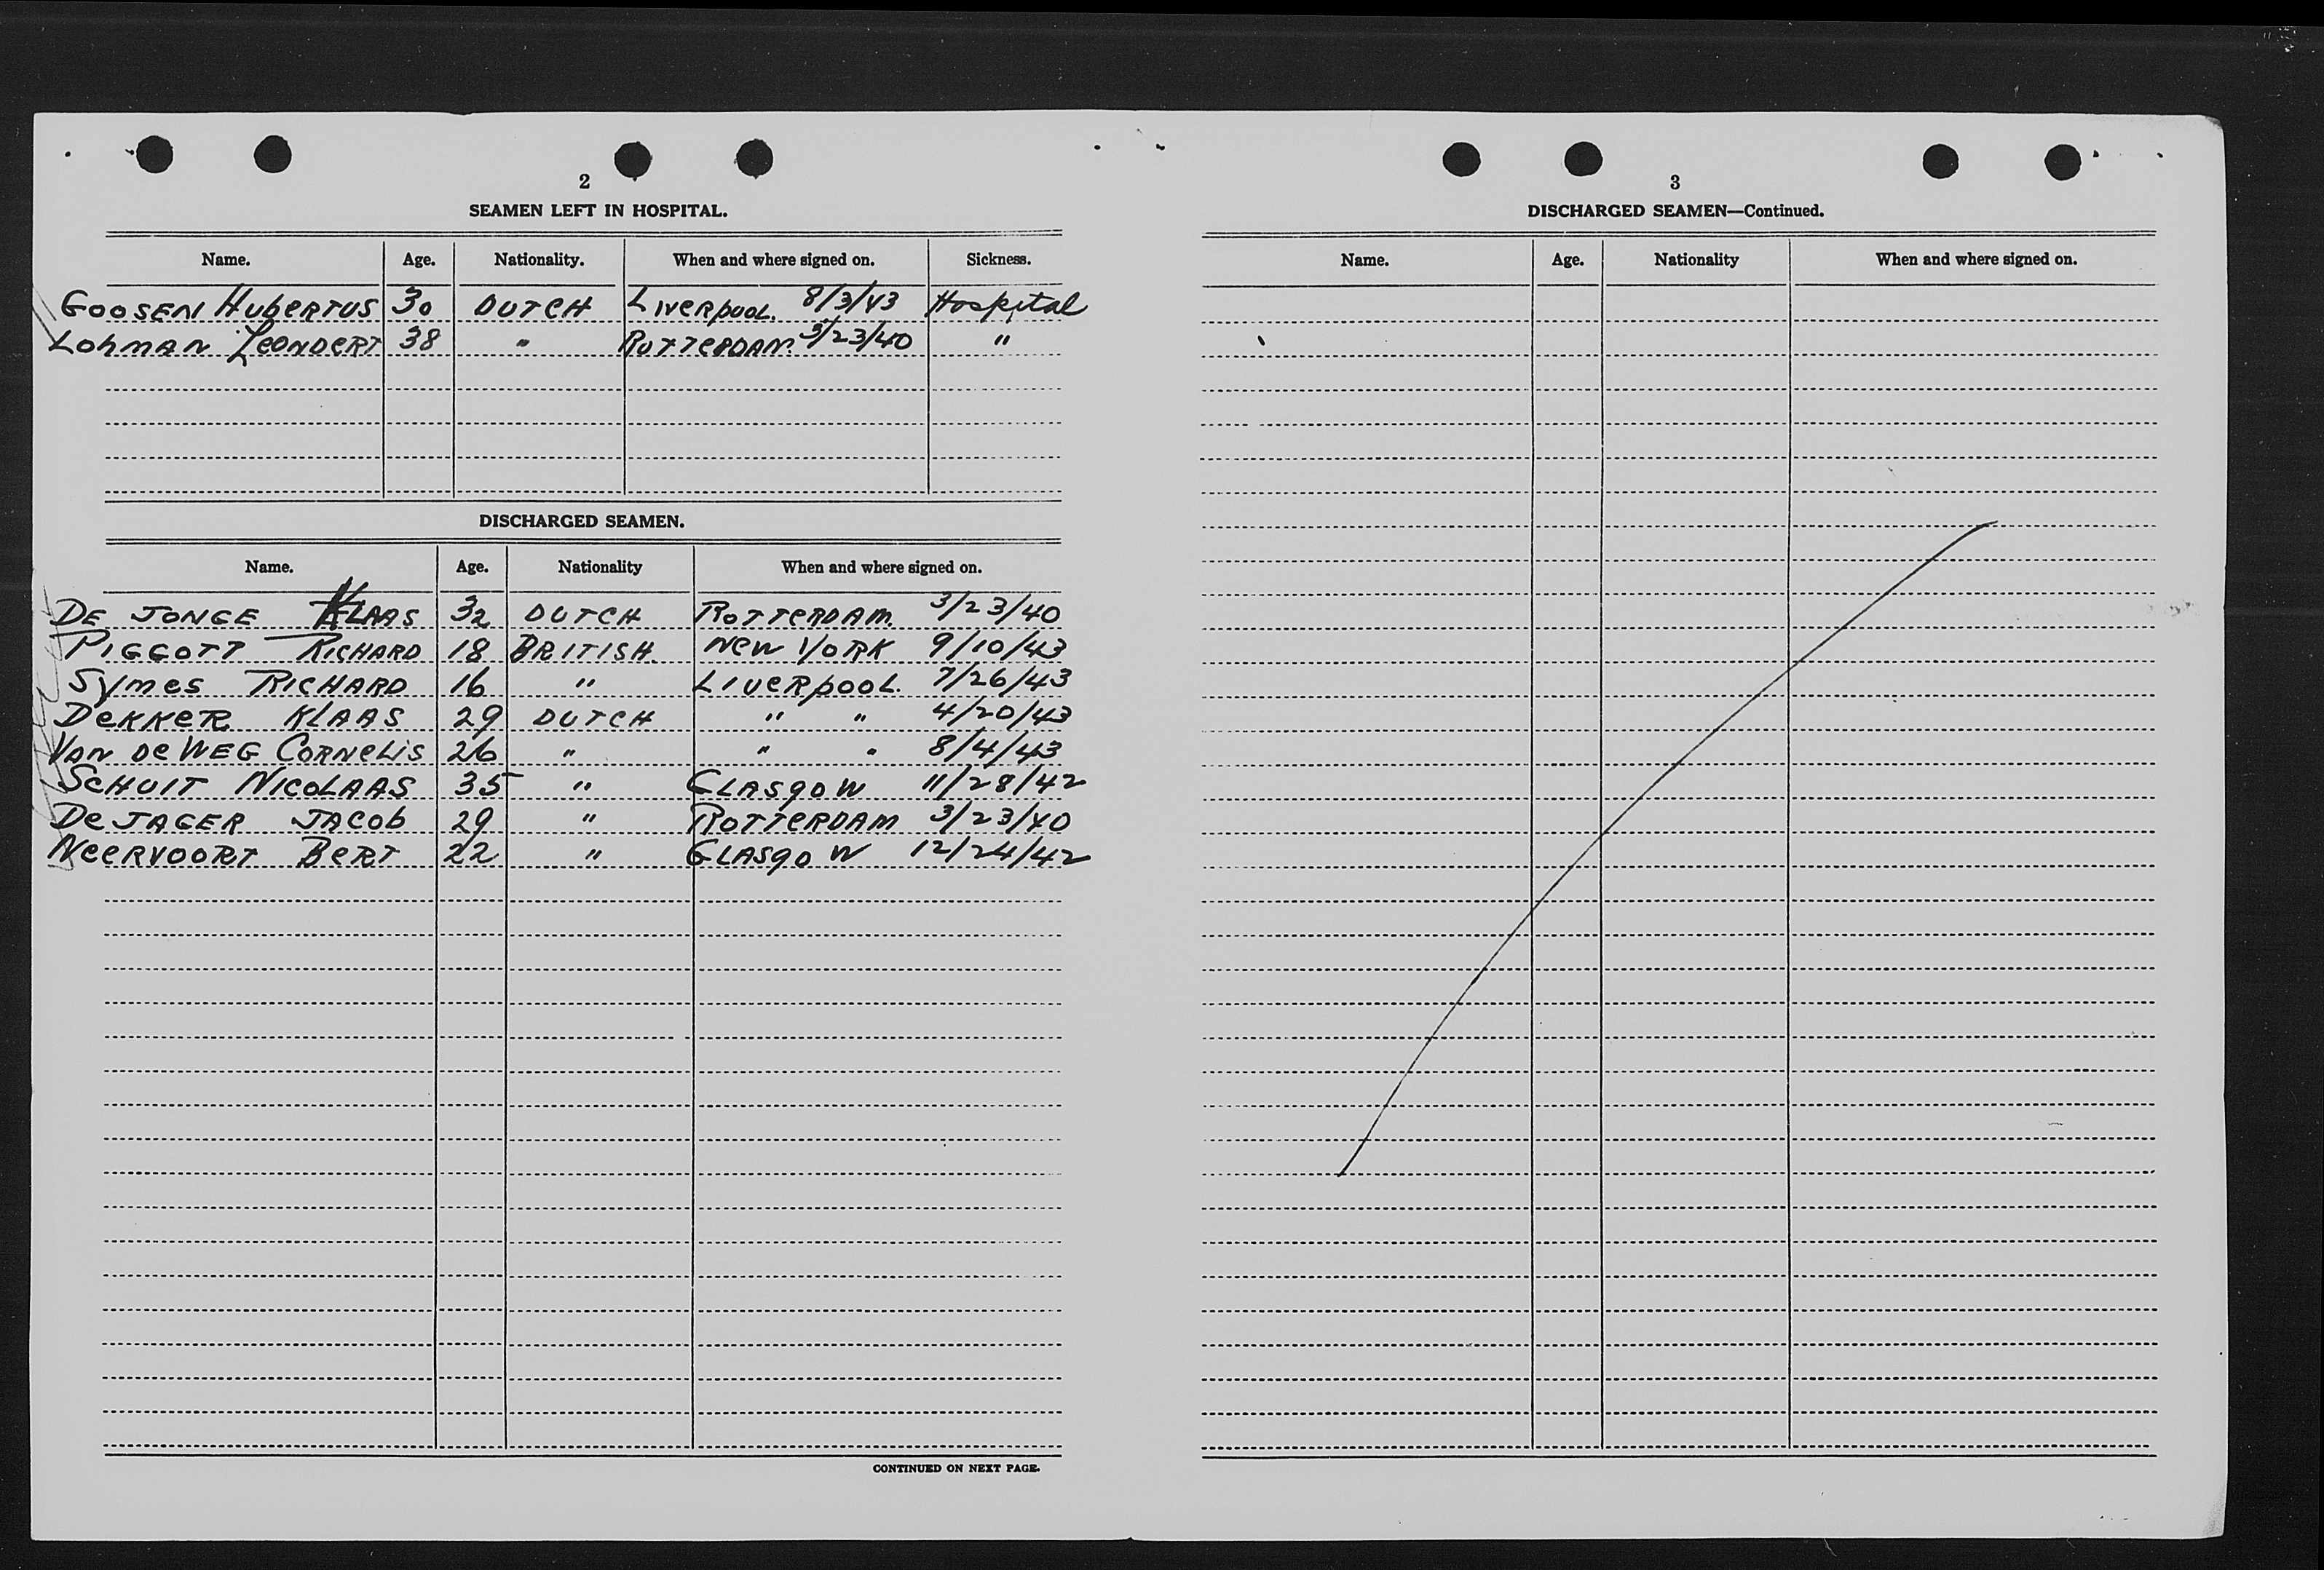 2
SEAMEN LEFT IN HOSPITAL.
Name. Age. Nationality. When and where signed on. Sickness.
GOOSEN HUBERTUS 30 DUTCH LIVERPOOL. 8/3/43 Hospital
LOHMAN LEONDERT 38 " ROTTERDAM. 3/23/40 "
DISCHARGED SEAMEN.
Name. Age. Nationality When and where signed on.
DE JONGE KLAAS 32 DUTCH ROTTERDAM. 3/23/40
PIGGOTT RICHARD 18 BRITISH. NEW YORK 9/10/43
SYMES RICHARD 16 " LIVERPOOL. 7/26/43
DEKKER KLAAS 29 DUTCH " " 4/20/43
VAN DE WEG CORNELIS 26 " " " 8/4/43
SCHUIT NICOLAAS 35 " GLASGOW 11/28/42
DE JAGER JACOB 29 " ROTTERDAM 3/23/40
NEERVOORT BERT 22 " GLASGOW 12/24/42
CONTINUED ON NEXT PAGE.
3
DISCHARGED SEAMEN—Continued.
Name. Age. Nationality When and where signed on.